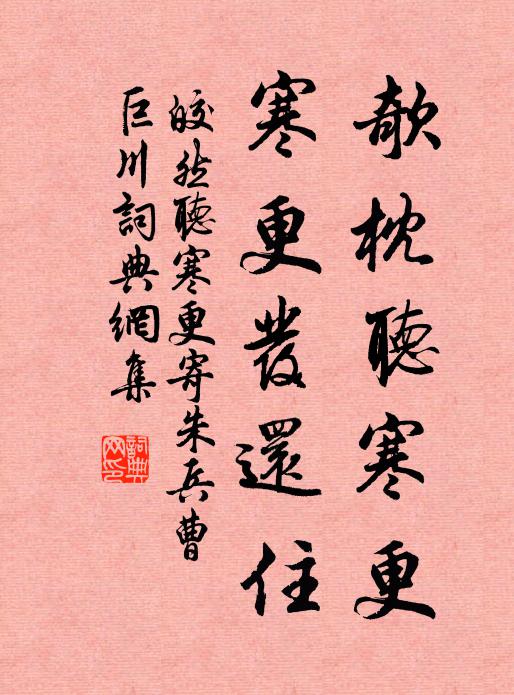 欹枕聽寒更
寒更發還住
皎然聽寒更寄朱兵曹
巨川詞典網集
詞典網印